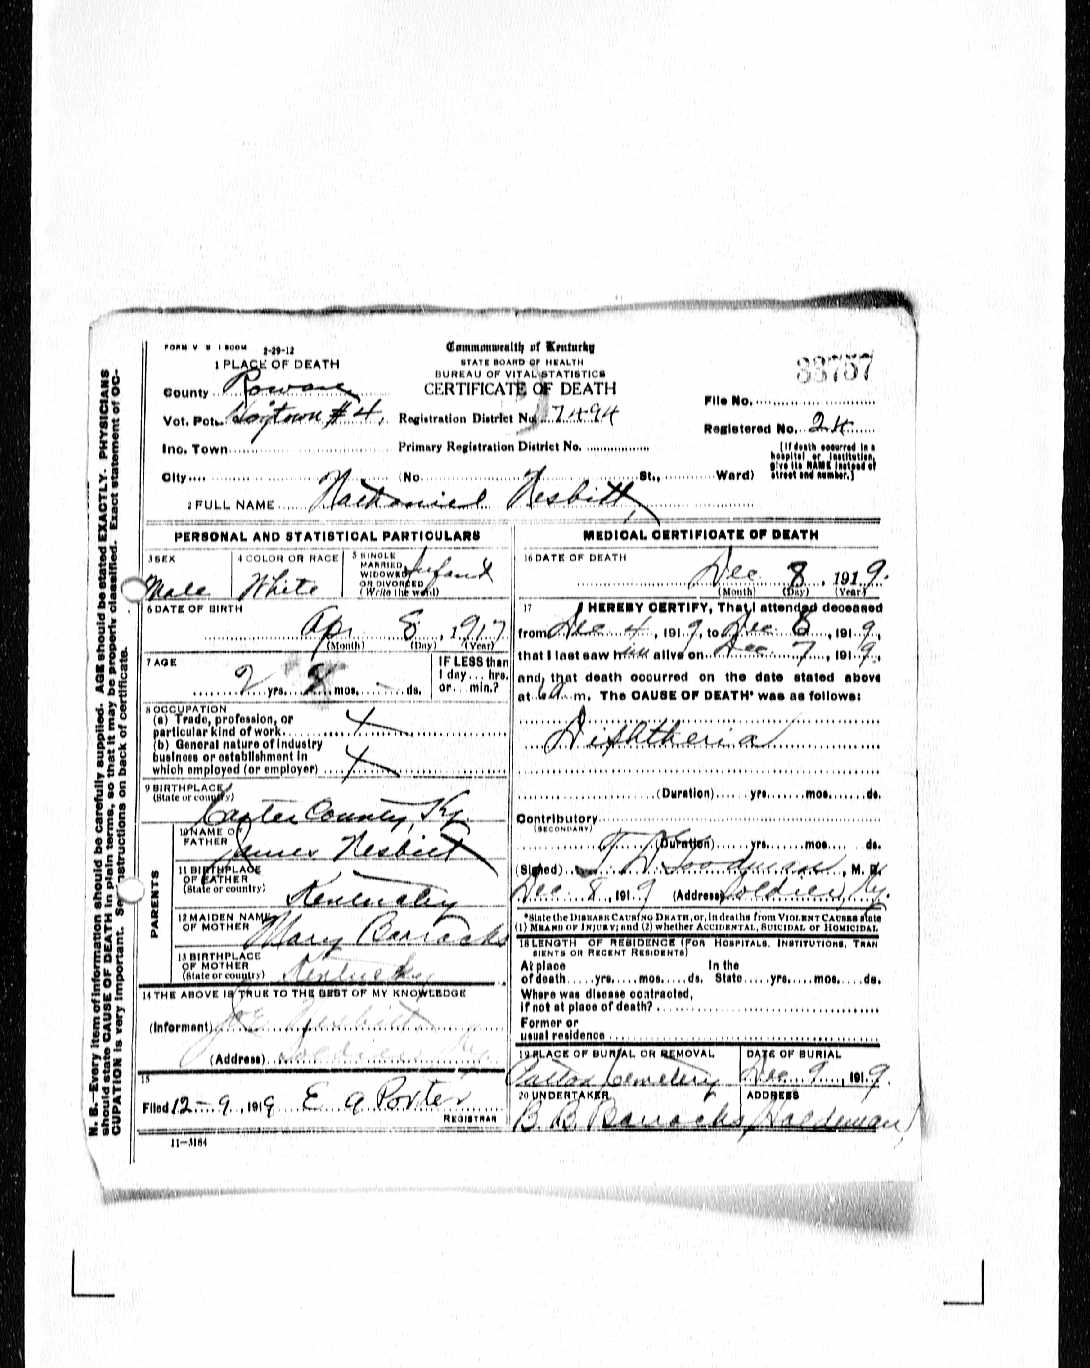 FORM V S 1 500M 2-29-12
1 PLACE OF DEATH
County Rowan
Vot. Pct. #4,
Inc. Town
City (No. St., Ward)
Commonwealth of Kentucky
STATE BOARD OF HEALTH
BUREAU OF VITAL STATISTICS
CERTIFICATE OF DEATH
Registration District No. 7494
Primary Registration District No.
33757
File No.
Registered No. 24
(If death occurred in a
hospital or institution,
give its NAME instead of
street and number.)
2 FULL NAME Nathaniel Nesbitt
PERSONAL AND STATISTICAL PARTICULARS
3 SEX
Male
4 COLOR OR RACE
White
5 SINGLE
MARRIED
WIDOWED
OR DIVORCED
(Write the word)
Infant
6 DATE OF BIRTH
Apr 8, 1917
(Month) (Day) (Year)
7 AGE
2 yrs. 8 mos. - ds.
IF LESS than
1 day... hrs.
or... min.?
8 OCCUPATION
(a) Trade, profession, or
particular kind of work X
(b) General nature of industry
business or establishment in
which employed (or employer) X
9 BIRTHPLACE
(State or country)
Carter County, Ky
PARENTS
10 NAME OF
FATHER
James Nesbitt
11 BIRTHPLACE
OF FATHER
(State or country)
Kentucky
12 MAIDEN NAME
OF MOTHER
Mary Barracks
13 BIRTHPLACE
OF MOTHER
(State or country)
Kentucky
14 THE ABOVE IS TRUE TO THE BEST OF MY KNOWLEDGE
(Informant) Nesbitt
(Address) Soldier Ky.
15
Filed 12-9, 1919 E A Porter
REGISTRAR
11-3184
MEDICAL CERTIFICATE OF DEATH
16 DATE OF DEATH
Dec 8, 1919.
(Month) (Day) (Year)
17 I HEREBY CERTIFY, That I attended deceased
from Dec 4, 1919, to Dec 8, 1919,
that I last saw him alive on Dec 7, 1919,
and, that death occurred on the date stated above
at 6 a m. The CAUSE OF DEATH* was as follows:
Diphtheria
(Duration) yrs. mos. ds.
Contributory
(SECONDARY)
(Duration) yrs. mos. ds.
(Signed) Goodman, M. D.
Dec 8, 1919 (Address) Soldier, Ky.
*State the DISEASE CAUSING DEATH, or, in deaths from VIOLENT CAUSES state
(1) MEANS OF INJURY; and (2) whether ACCIDENTAL, SUICIDAL or HOMICIDAL
18 LENGTH OF RESIDENCE (FOR HOSPITALS, INSTITUTIONS, TRAN
SIENTS OR RECENT RESIDENTS)
At place In the
of death yrs. mos. ds. State yrs. mos. ds.
Where was disease contracted,
if not at place of death?
Former or
usual residence
19 PLACE OF BURIAL OR REMOVAL
Cemetery
DATE OF BURIAL
Dec 9, 1919.
20 UNDERTAKER
B. B. Barracks
ADDRESS
Haldeman
N. B.—Every item of information should be carefully supplied. AGE should be stated EXACTLY. PHYSICIANS
should state CAUSE OF DEATH in plain terms, so that it may be properly classified. Exact statement of OC-
CUPATION is very important. See instructions on back of certificate.